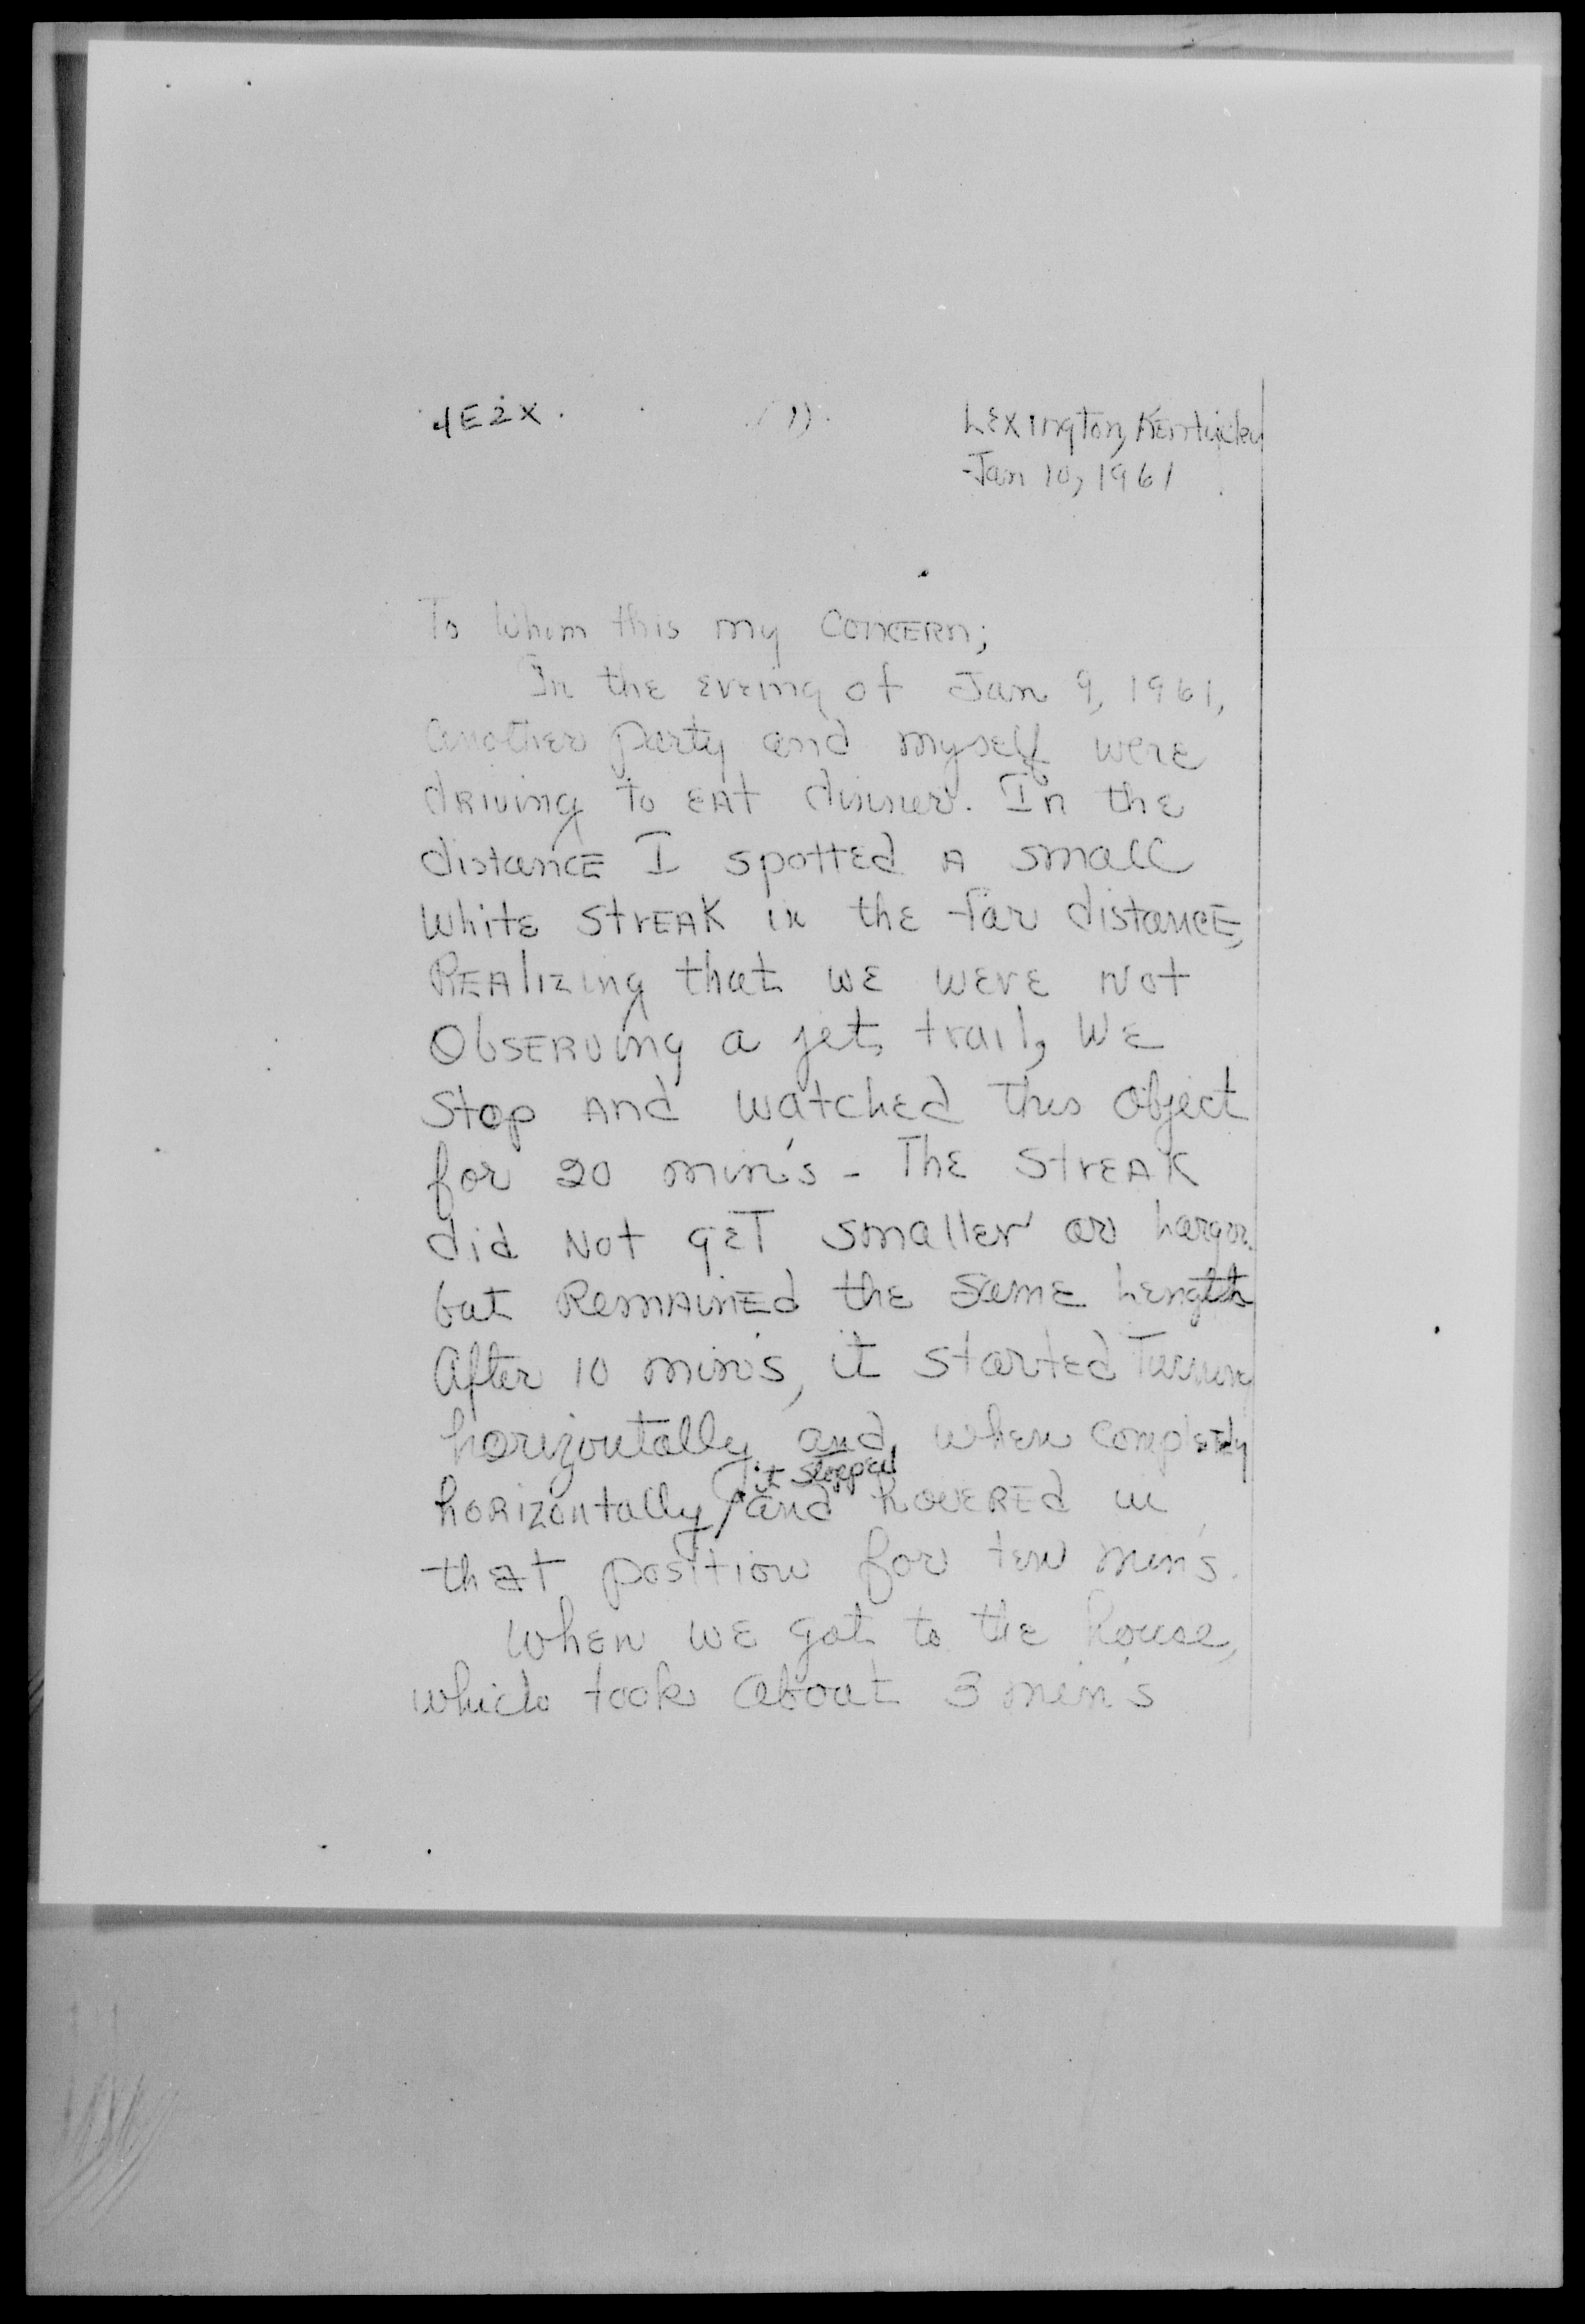 4E2X. (1). Lexington, Kentucky
Jan 10, 1961
To Whom this my concern;
In the eveing of Jan 9, 1961,
another party and myself were
driving to eat dinner. In the
distance I spotted a small
white streak in the far distance,
Realizing that we were not
observing a jet trail, we
stop and watched this object
for 20 min's - The streak
did not get smaller or larger
but remained the same length
After 10 min's, it started turning
horizontally and, when completly
it stopped
horizontally and hovered in
that position for ten min's.
When we got to the house,
which took about 3 min's